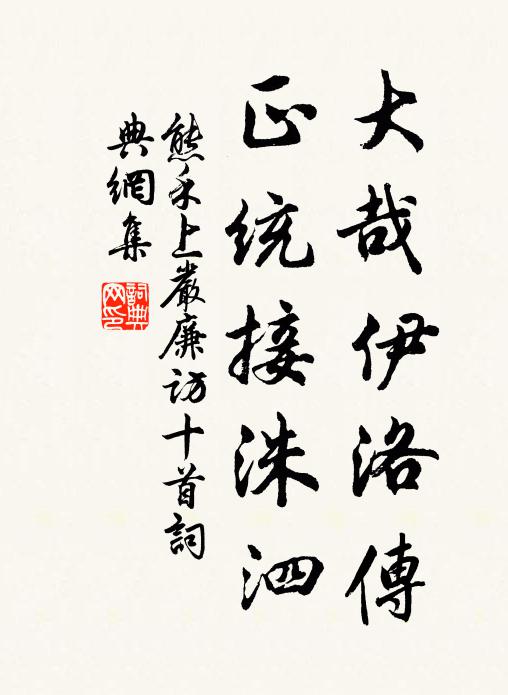 大哉伊洛傳
正統接洙泗
熊禾上嚴廉訪十首詞
典網集
詞典網印